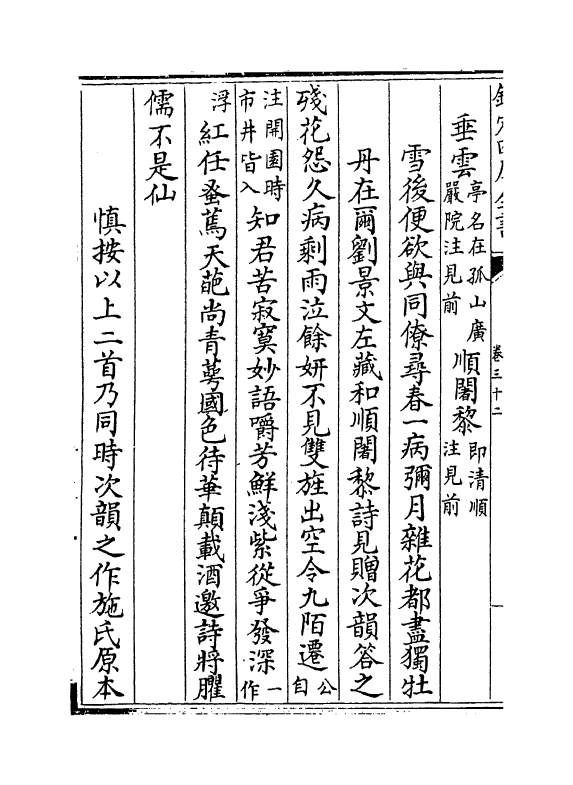 欽定四庫全書 卷三十二
垂雲亭名在孤山廣嚴院注見前順闍黎即清順注見前
雪後便欲與同僚尋春一病彌月雜花都盡獨牡
丹在爾劉景文左藏和順闍黎詩見贈次韻答之
殘花怨久病剩雨泣餘妍不見雙旌出空令九陌遷公自
注開園時市井皆入知君苦寂寞妙語嚼芳鮮淺紫從爭發深一作
浮紅任蚤蔫天葩尚青萼國色待華顛載酒邀詩將臞
儒不是仙
慎按以上二首乃同時次韻之作施氏原本